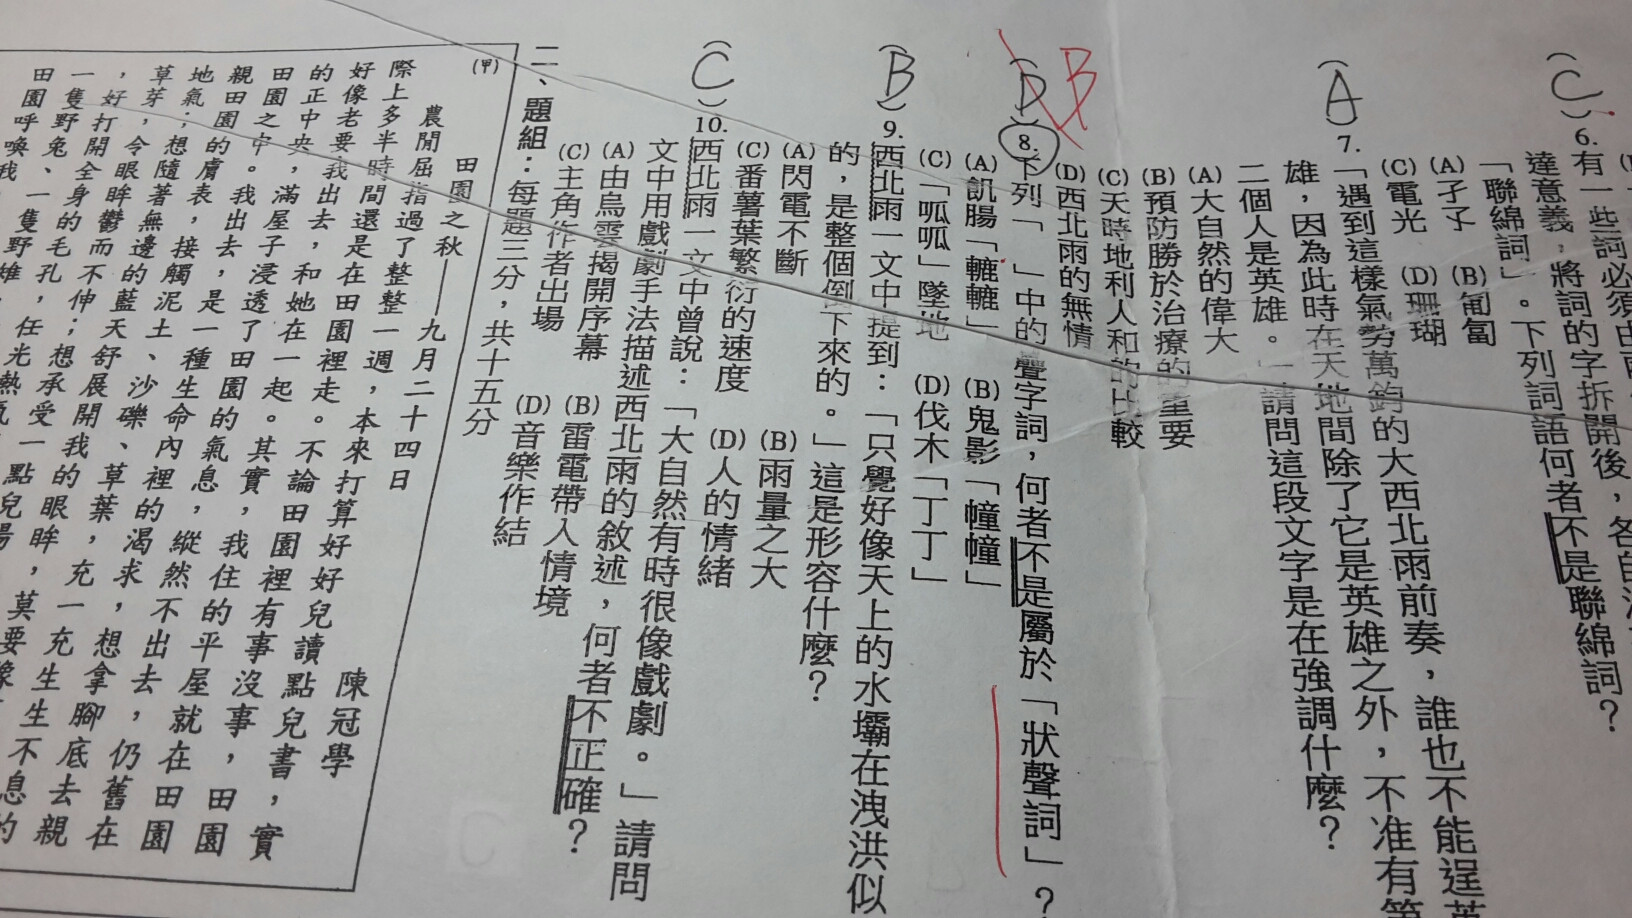 6. 有一些詞必須由兩
達意義，將詞的字拆開後，各自沒
「聯綿詞」。下列詞語何者不是聯綿詞？
(A)孑孓 (B)匍匐
(C)電光 (D)珊瑚
(C)
7. 「遇到這樣氣勢萬鈞的大西北雨前奏，誰也不能逞英
雄，因為此時在天地間除了它是英雄之外，不准有第
二個人是英雄。」請問這段文字是在強調什麼？
(A)大自然的偉大
(B)預防勝於治療的重要
(C)天時地利人和的比較
(D)西北雨的無情
(A)
8. 下列「 」中的疊字詞，何者不是屬於「狀聲詞」？
(A)飢腸「轆轆」 (B)鬼影「幢幢」
(C)「呱呱」墜地 (D)伐木「丁丁」
(D) B
9. 西北雨一文中提到：「只覺好像天上的水壩在洩洪似
的，是整個倒下來的。」這是形容什麼？
(A)閃電不斷 (B)雨量之大
(C)番薯葉繁衍的速度 (D)人的情緒
(B)
10. 西北雨一文中曾說：「大自然有時很像戲劇。」請問
文中用戲劇手法描述西北雨的敘述，何者不正確？
(A)由烏雲揭開序幕 (B)雷電帶入情境
(C)主角作者出場 (D)音樂作結
(C)
二、題組：每題三分，共十五分
(甲)
田園之秋——九月二十四日 陳冠學
農閒屈指過了整整一週，本來打算好好兒讀點兒書，實
際上多半時間還是在田園裡走。不論田園裡有事沒事，田園
好像老要我出去，和她在一起。其實，我住的平屋就在田園
的正中央，滿屋子浸透了田園的氣息，縱然不出去，仍舊在
田園之中。我出去，是一種生命內裡的渴求，想拿腳底去親
親田園的膚表，接觸泥土、沙礫、草葉，充一充生生不息的
地氣；想隨著無邊的藍天舒展開我的眼眸，莫要像
草芽，令眼眸鬱而不伸；想承受一點兒陽
，好打開全身的毛孔，任光熱
一隻野兔、一隻野雉
田園呼喚我